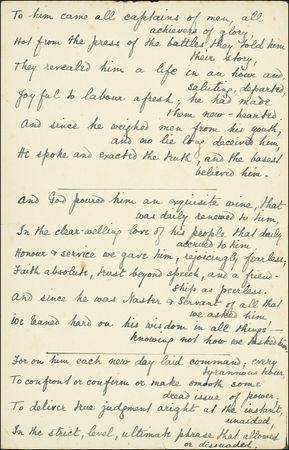 To him came all captains of men, all
achievers of glory,
Hot from the press of the battles they told him
their story;
They revealed him a life in an hour and,
saluting, departed
Joyful to labour afresh; he had made
them new-hearted.
And since he weighed men from his youth,
and no lie long deceived him,
He spoke and exacted the truth, and the basest
believed him.
And God poured him an exquisite wine, that
was daily renewed to him,
In the clear-welling love of his people that daily
accrued to him.
Honour & service we gave him, rejoicingly fearless;
Faith absolute, trust beyond speech, and a friend-
ship as peerless.
And since he was Master & Servant of all that
we asked him
We leaned hard on his wisdom in all things -
knowing not how we tasked him
For on him each new day laid command, every
tyrannous hour
To confront or confirm or make smooth some
dread issue of power;
To deliver true judgment aright at the instant,
unaided,
In the strict, level, ultimate phrase that allowed
or dissuaded.